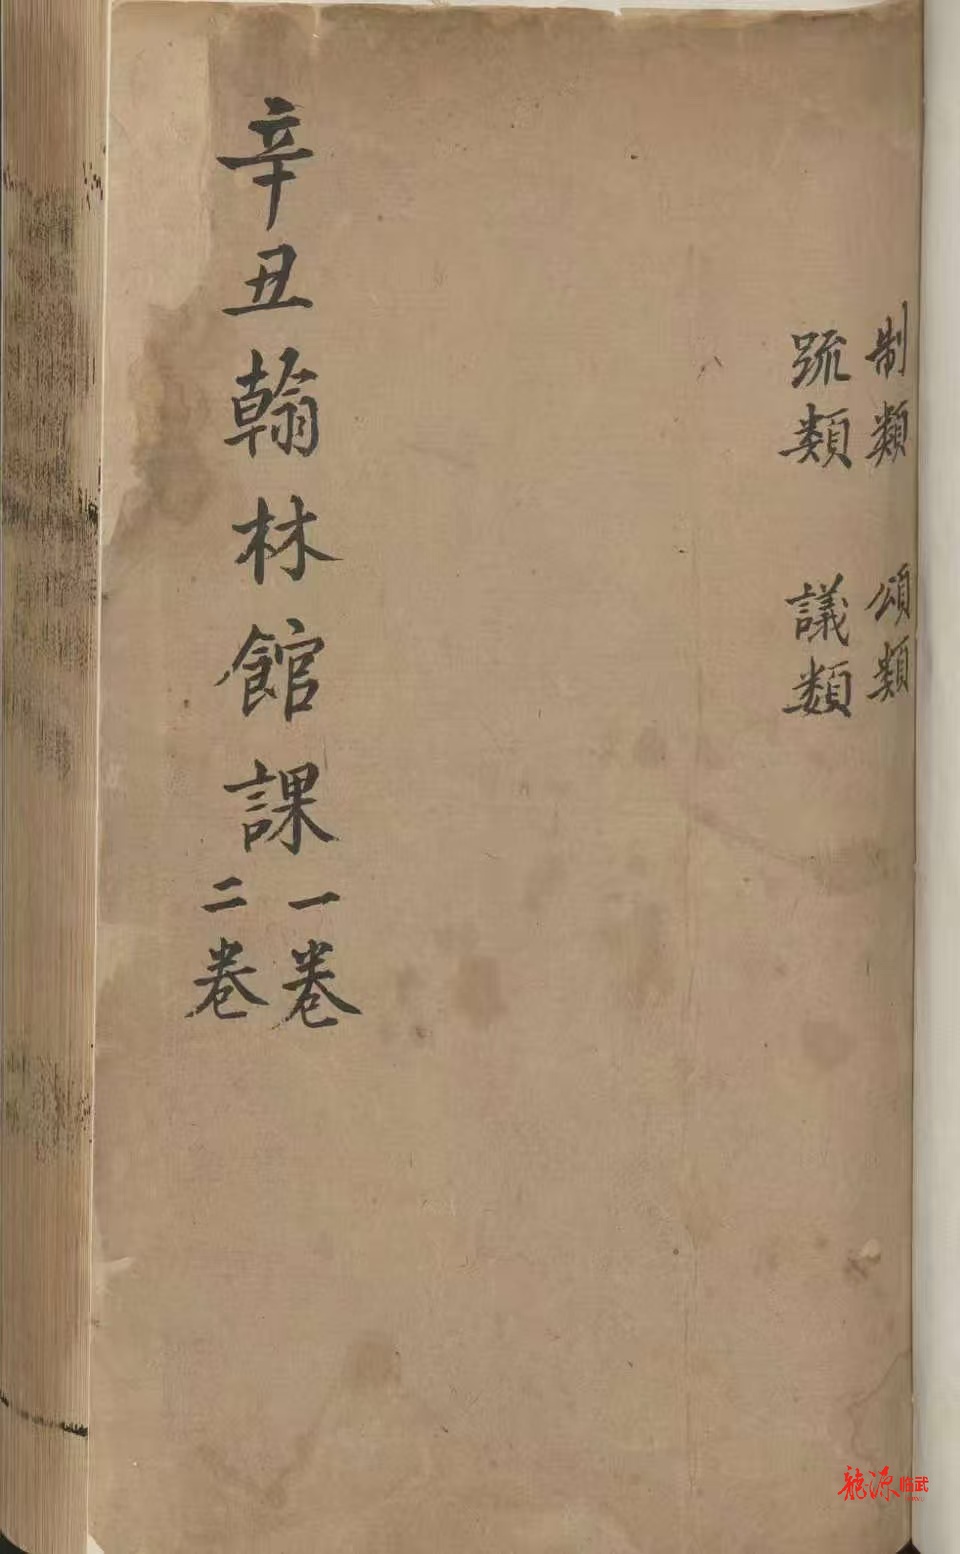 制類 頌類
䟽類 議類
辛丑翰林館課
一卷
二卷
龍源临武